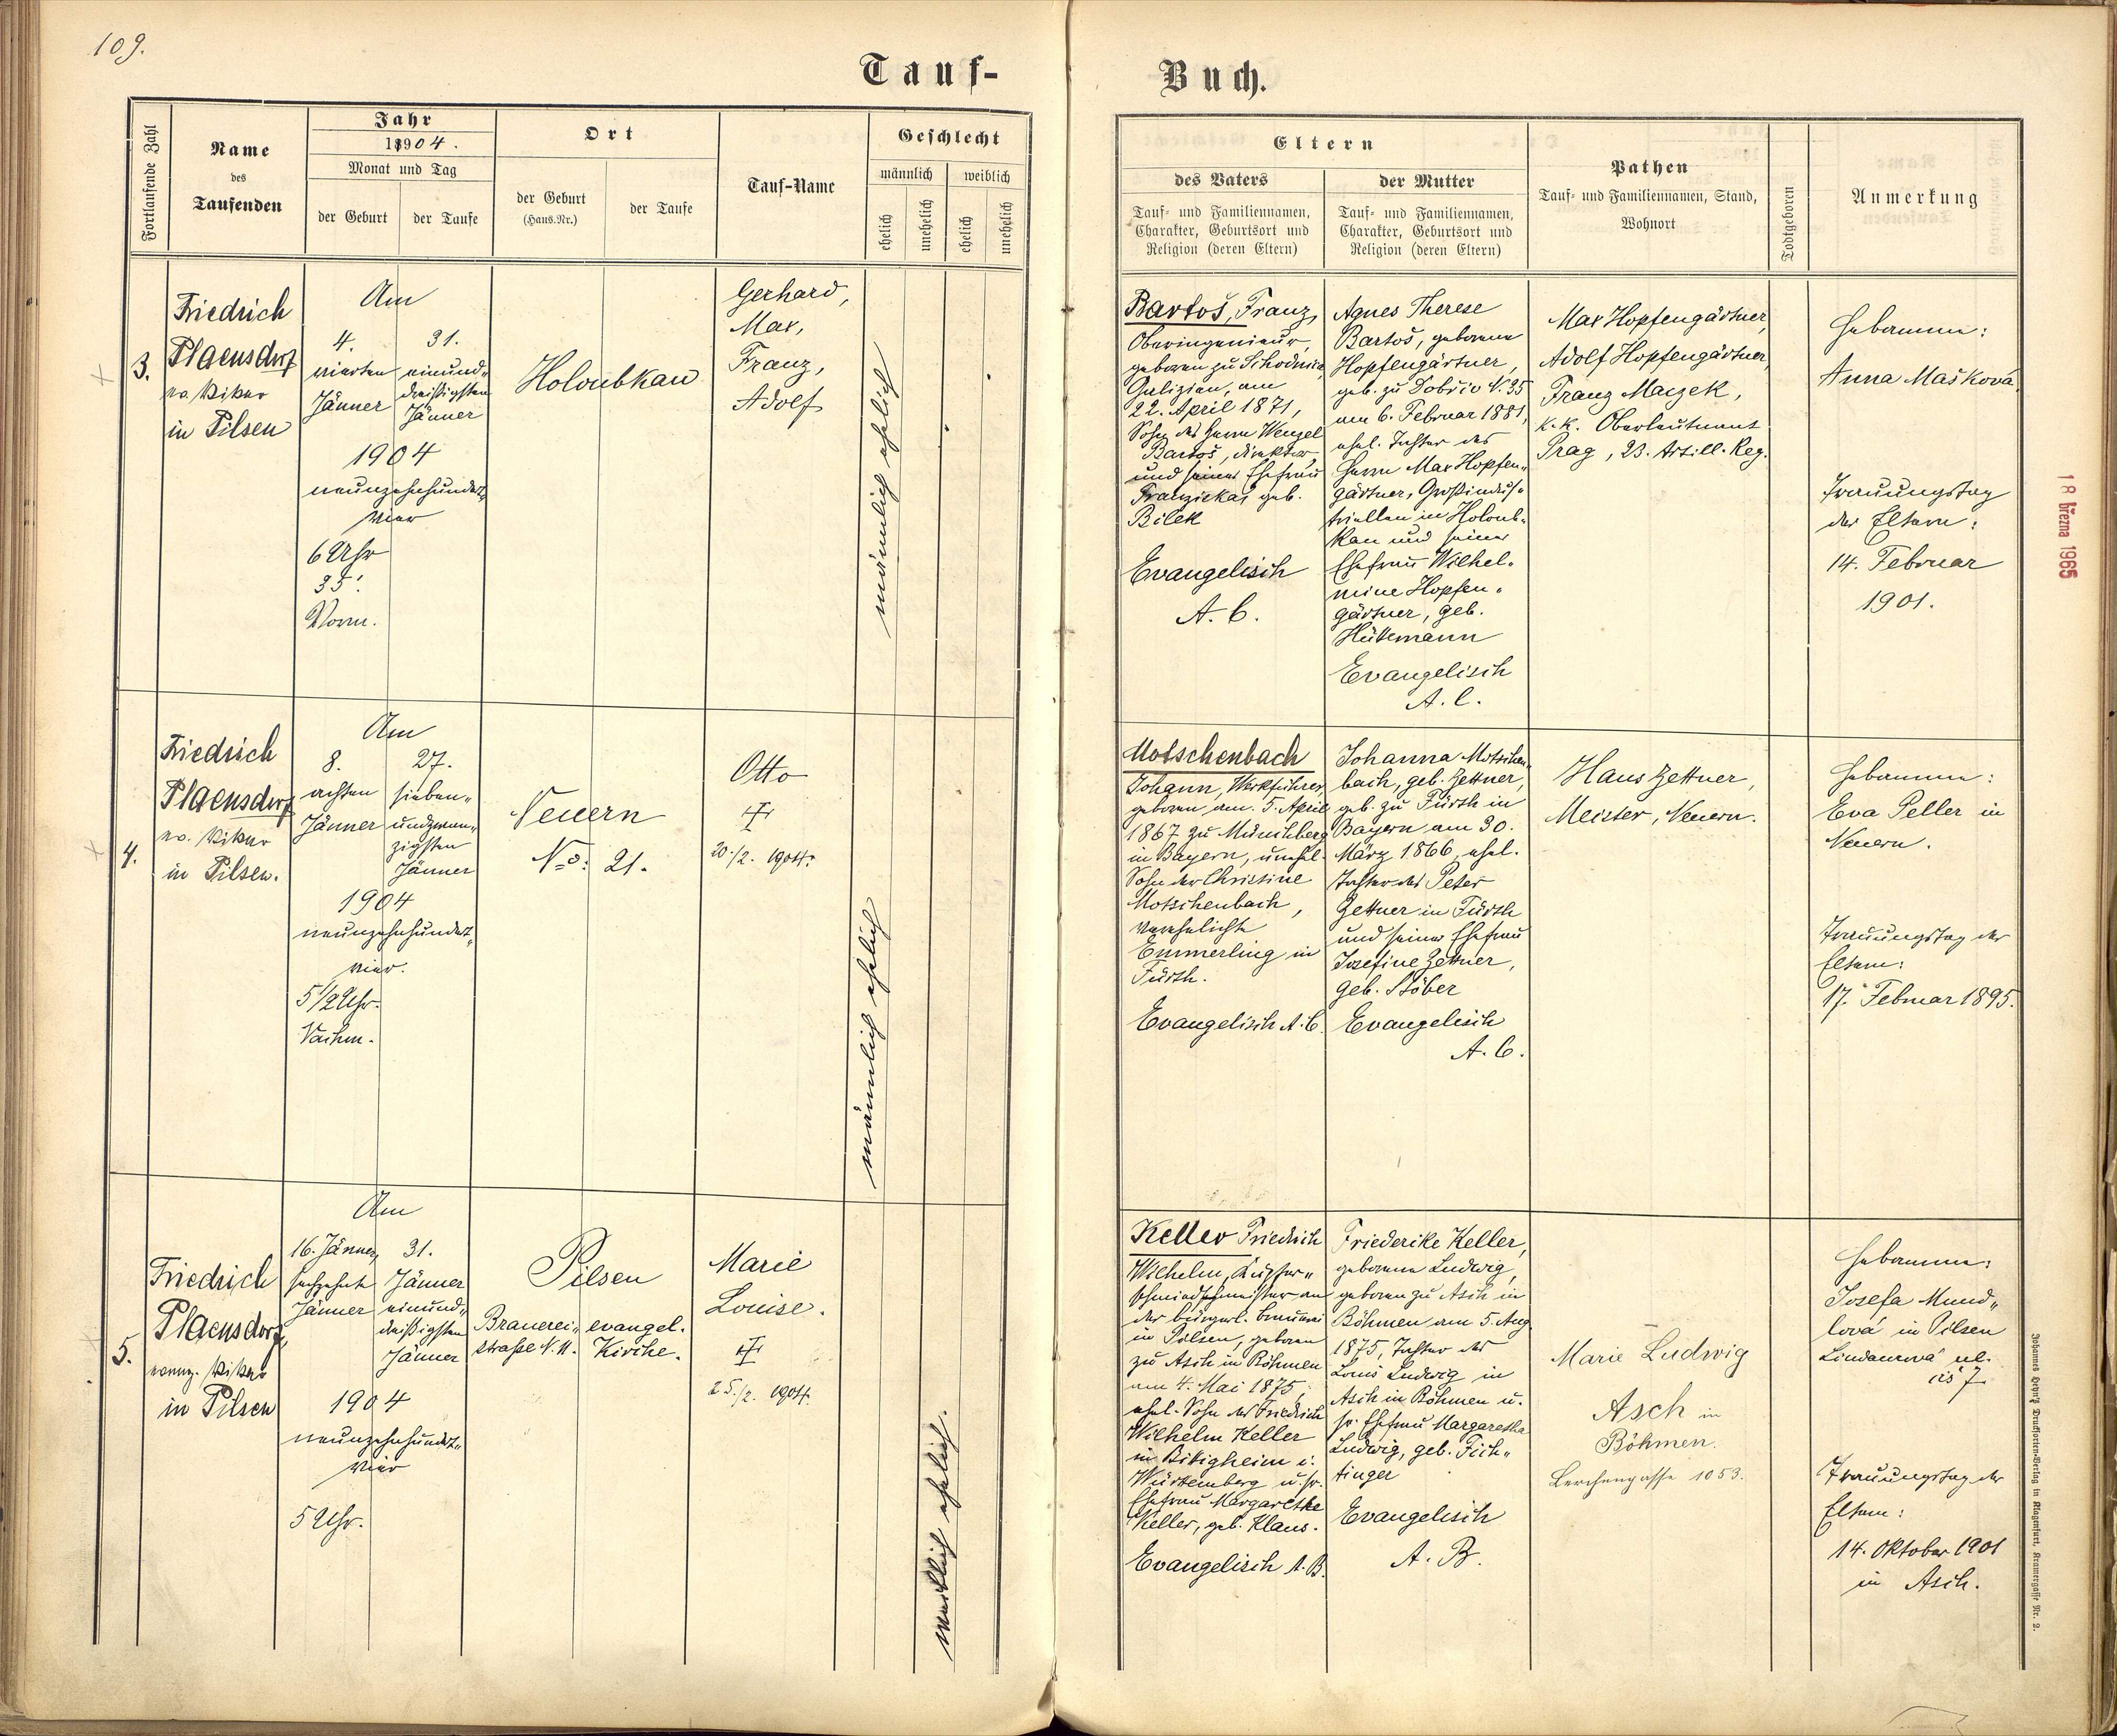 109.
Tauf-
Buch.
Fortlaufende Zahl
Name
des
Taufenden
Jahr
1904.
Monat und Tag
der Geburt
der Taufe
Ort
der Geburt
(Haus-Nr.)
der Taufe
Tauf-Name
Geschlecht
männlich
weiblich
ehelich
unehelich
ehelich
unehelich
Eltern
des Vaters
Tauf- und Familiennamen,
Charakter, Geburtsort und
Religion (deren Eltern)
der Mutter
Tauf- und Familiennamen,
Charakter, Geburtsort und
Religion (deren Eltern)
Pathen
Tauf- und Familiennamen, Stand,
Wohnort
Todtgeboren
Anmerkung
3.
Friedrich
Plaensdorf
ev. Vikar
in Pilsen
Am
4.
vierten
Jänner
31.
einund-
dreißigsten
Jänner
1904
neunzehnhundert-
vier
6 Uhr
35'
Vorm.
Holoubkau
Gerhard,
Max,
Franz,
Adolf
männlich ehelich
Bartoš, Franz,
Oberingenieur,
geboren zu Schodnica,
Galizien, am
22. April 1871,
Sohn des Herrn Wenzel
Bartoš, Direktor
und seiner Ehefrau
Franziska, geb.
Bilek
Evangelisch
A. C.
Agnes Therese
Bartoš, geborene
Hopfengärtner,
geb. zu Dobřiv N. 35
am 6. Februar 1881,
ehel. Tochter des
Herrn Max Hopfen-
gärtner, Großindus-
triellen in Holoub-
kau und seiner
Ehefrau Wilhel-
mine Hopfen-
gärtner, geb.
Hüttemann
Evangelisch
A. C.
Max Hopfengärtner,
Adolf Hopfengärtner,
Franz Maczek,
k. k. Oberleutnant
Prag, 23. Artill. Reg.
Hebamme:
Anna Mašková
Trauungstag
der Eltern:
14. Februar
1901.
4.
Friedrich
Plaensdorf
ev. Vikar
in Pilsen.
Am
8.
achten
Jänner
27.
sieben-
undzwan-
zigsten
Jänner
1904
neunzehnhundert-
vier.
5 1/2 Uhr.
Nachm.
Neuern
No: 21.
Otto
20./2. 1904.
männlich ehelich
Motschenbach
Johann, Werkführer,
geboren am 5. April
1867 zu Münchberg
in Bayern, unehel.
Sohn der Christine
Motschenbach,
verehelichte
Emmerling in
Fürth.
Evangelisch A. C.
Johanna Motschen-
bach, geb. Zettner,
geb. zu Fürth in
Bayern am 30.
März 1866, ehel.
Tochter des Peter
Zettner in Fürth
und seiner Ehefrau
Josefine Zettner,
geb. Stöber
Evangelisch
A. C.
Hans Zettner,
Meister, Neuern.
Hebamme:
Eva Peller in
Neuern.
Trauungstag der
Eltern:
17. Februar 1895.
5.
Friedrich
Plaensdorf,
evang. Vikar
in Pilsen
Am
16. Jänner,
sechzehnt
Jänner
31.
Jänner
einund-
dreißigsten
Jänner
1904
neunzehnhundert-
vier
5 Uhr.
Pilsen
Brauerei-
straße N. 11.
evangel.
Kirche.
Marie
Louise.
25./2. 1904.
weiblich ehelich.
Keller Friedrich
Wilhelm, Kupfer-
schmiedmeister an
der bürgerl. Brauerei
in Pilsen, geboren
zu Asch in Böhmen
am 4. Mai 1875,
ehel. Sohn des Friedrich
Wilhelm Keller
in Bitigheim i.
Württemberg u. sr.
Ehefrau Margarethe
Keller, geb. Klaus.
Evangelisch A. B.
Friederike Keller,
geborene Ludwig,
geboren zu Asch in
Böhmen am 5. Aug.
1875, Tochter des
Louis Ludwig in
Asch in Böhmen u.
sr. Ehefrau Margaretha
Ludwig, geb. Fich-
tinger
Evangelisch
A. B.
Marie Ludwig
Asch in
Böhmen.
Lerchengasse 1053.
Hebamme:
Josefa Mund-
lová in Pilsen
Lindaurová ul.
čís 7
Trauungstag der
Eltern:
14. Oktober 1901
in Asch.
18 března 1965
Johannes Heyn's Drucksorten-Verlag in Klagenfurt, Kramergasse Nr. 2.